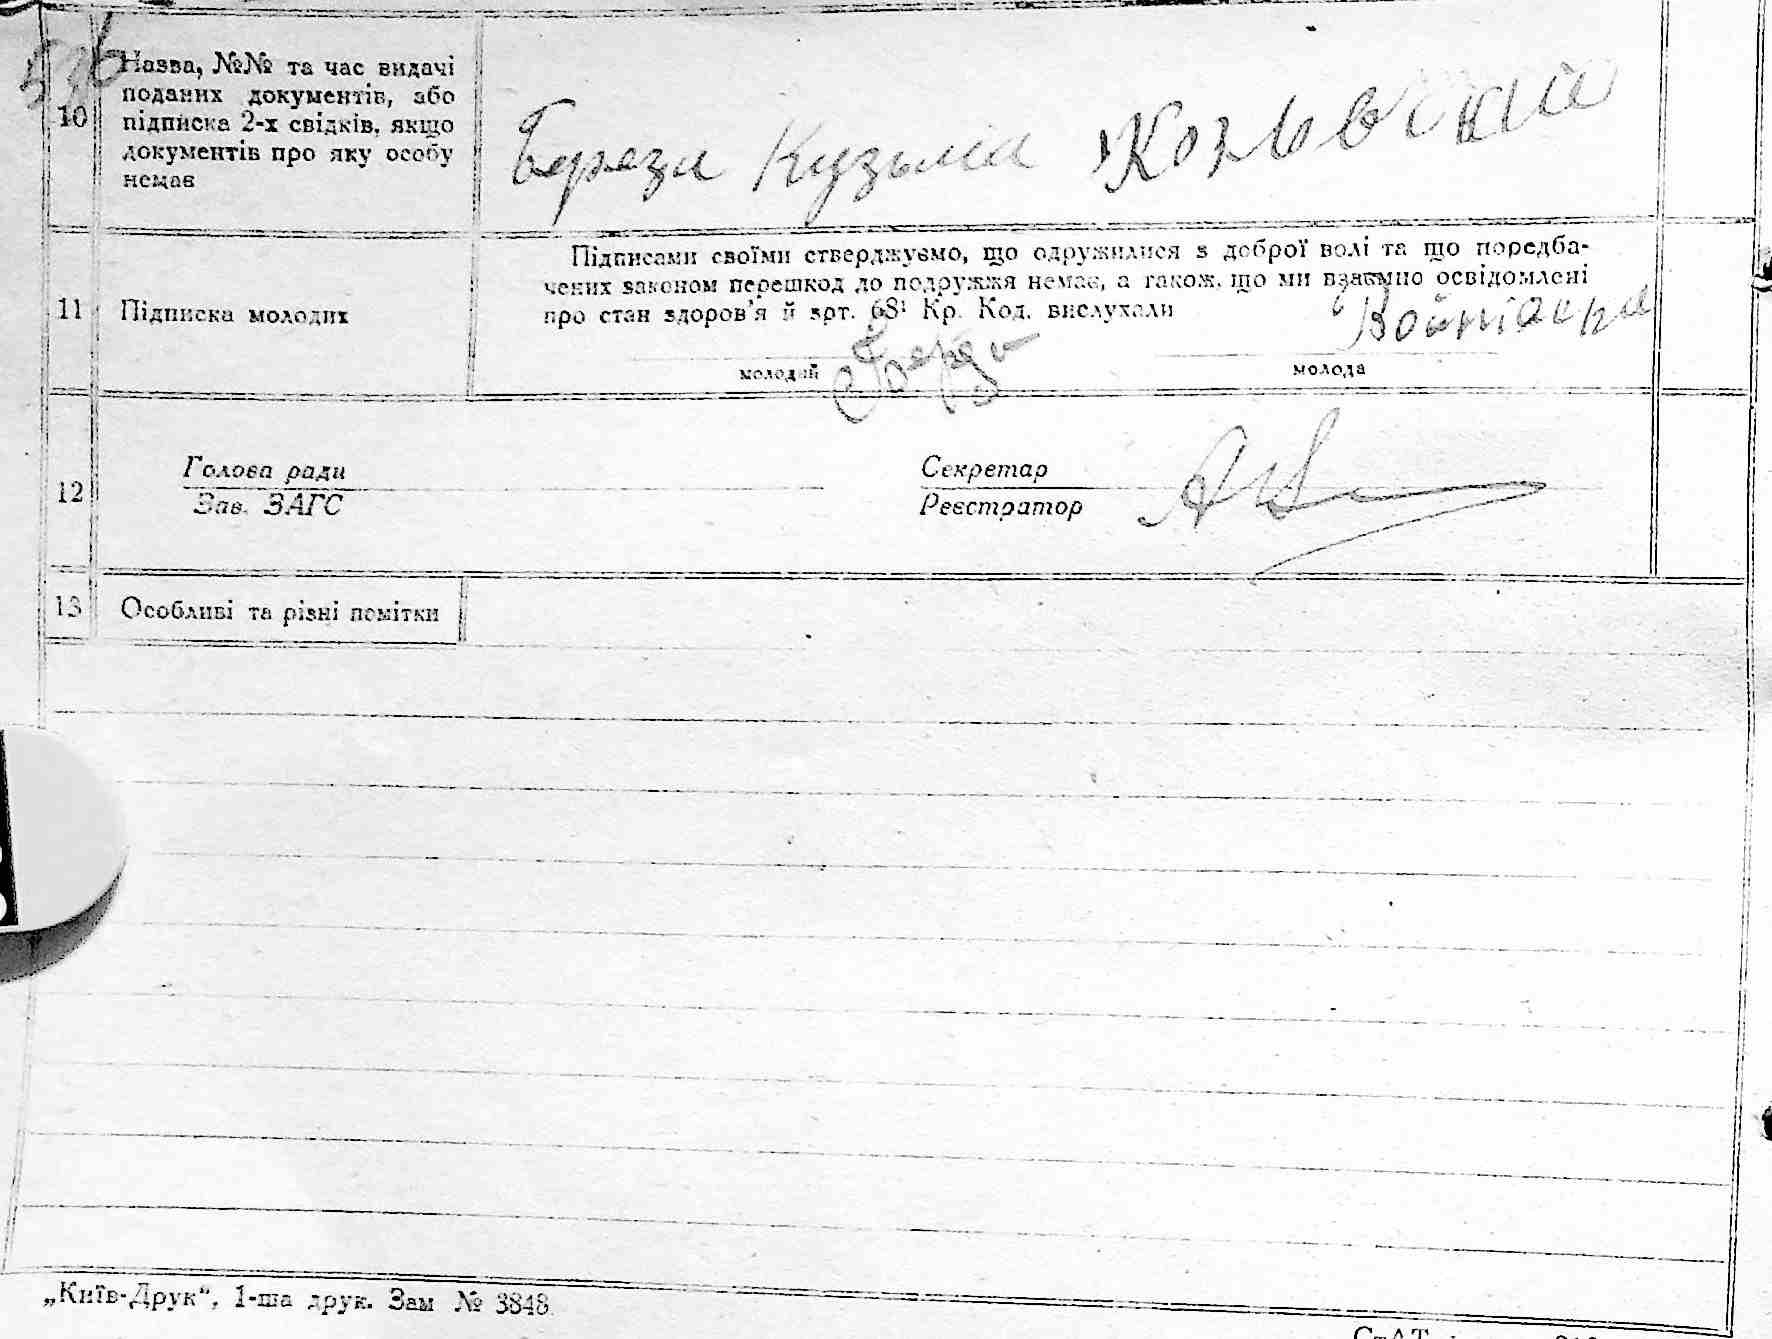 10 Назва, №№ та час видачі
поданих документів, або
підписка 2-х свідків, якщо
документів про яку особу
немає
Береза Кузьма
11 Підписка молодих
Підписами своїми стверджуємо, що одружилися з доброї волі та що передба-
чених законом перешкод до подружжя немає, а також, що ми взаємно освідомлені
про стан здоров'я й арт. 68¹ Кр. Код. вислухали
Береза
молодий молода
12 Голова ради
Зав. ЗАГС
Секретар
Реєстратор
13 Особливі та різні помітки
„Київ-Друк", 1-ша друк. Зам № 3848